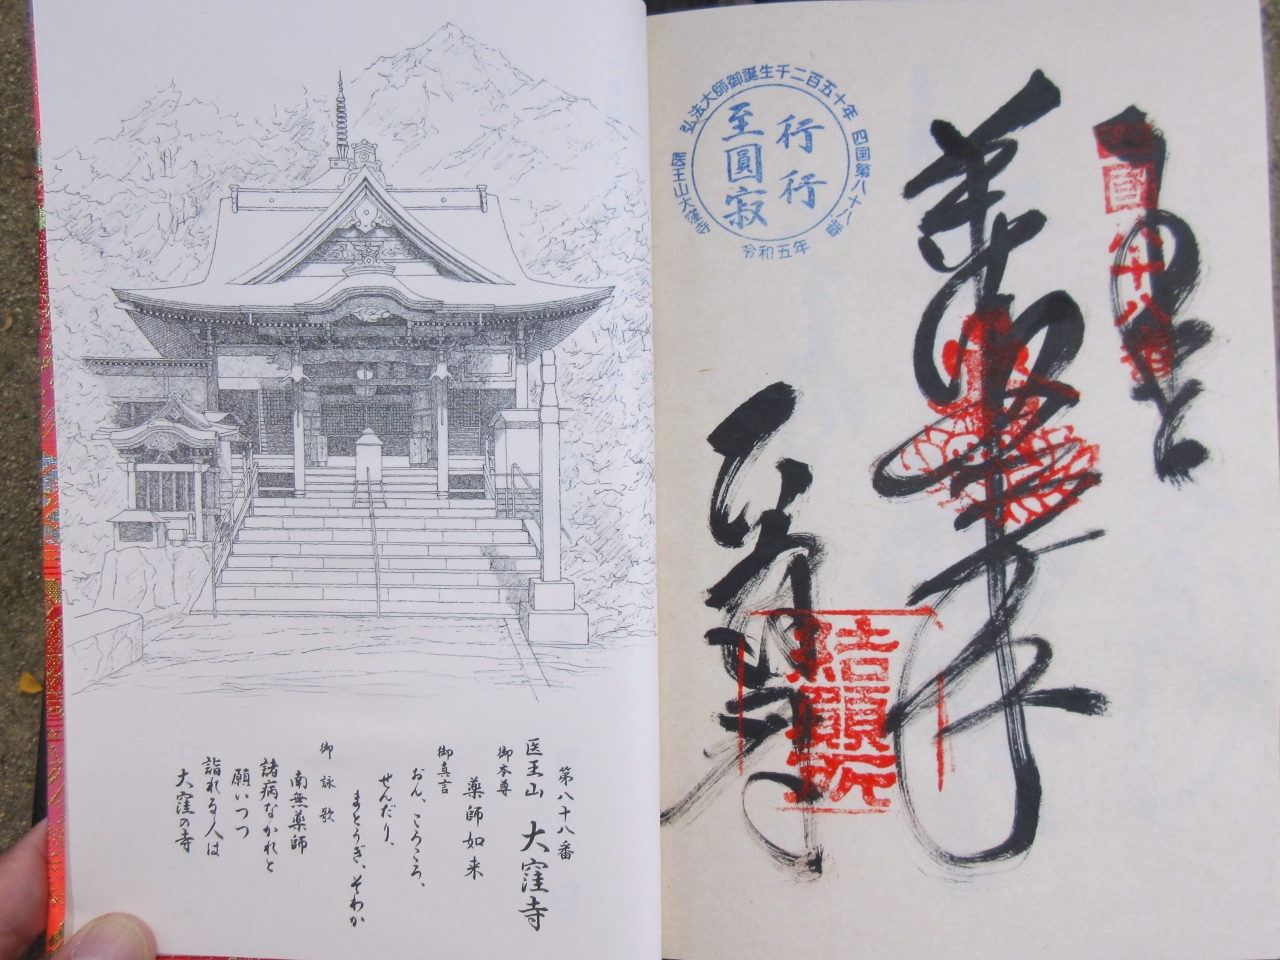 第八十八番
医王山 大窪寺
御本尊
薬師如来
御真言
おん、ころころ、
せんだり、
まとうぎ、そわか
御詠歌
南無薬師
諸病なかれと
願いつつ
詣れる人は
大窪の寺
弘法大師御誕生千二百五十年
四国第八十八番
医王山大窪寺
令和五年
行行
至圓寂
四國八十八番
結願所